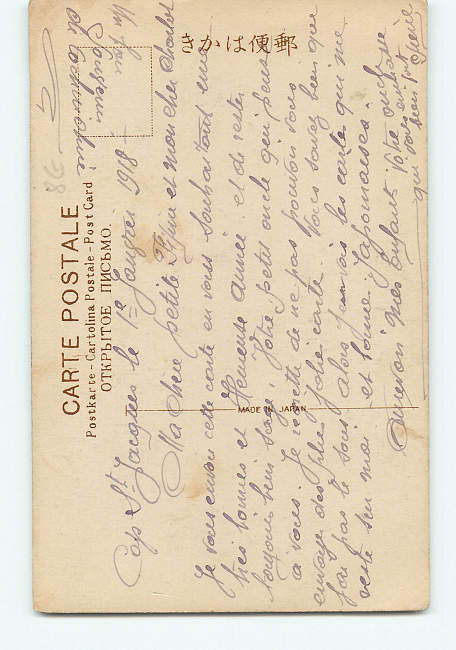 郵便はかき
CARTE POSTALE
Postkarte - Cartolina Postale - Post Card
ОТКРЫТОЕ ПИСЬМО.
MADE IN JAPAN
Cap St Jacques le 1er 1918
Ma chère petite et mon cher Charlot
Je vous envoie cette carte en vous souhaitant une
très bonnes et Heureuse année et de rester
toujours bien sage. Votre petit oncle qui pense
à vous. Je regrette de ne pas pouvoir vous
envoyé des plus jolie carte. Vous savez bien que
pas le sous alors les carte qui me
reste sur moi et bonne Japonaises.
Au revoir mes Enfant Votre oncle
qui vous embrasse
qui bien